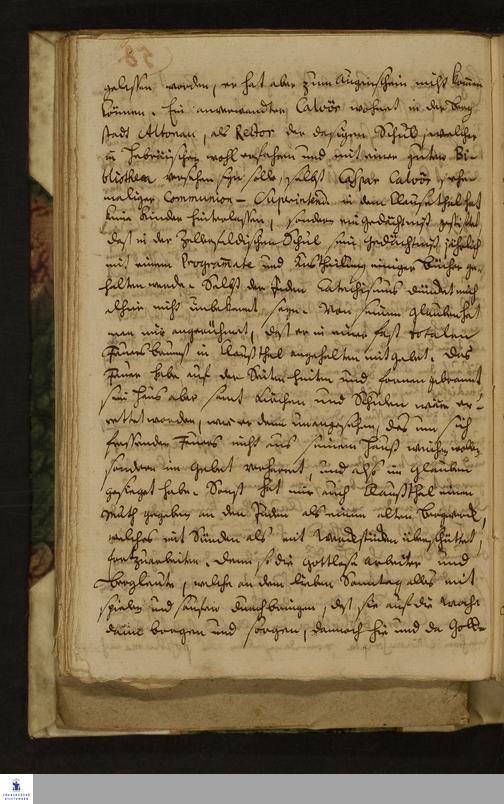 58.
gelassen worden, er hat aber zum Augenschein nicht kom̃en
können. Ein anverwandter Calvör wohnet in der Berg
stadt Altenau, als Rector der dasigen Schul, welcher
in Hebräischen wohl erfahren und mit einer guten Bi-
bliothec versehen seyn solle, selbst Caspar Calvör, ehe
maliger Communion-Superintend. in dem Clausthal hat
keine Kinder hinterlassen, sondern ein Gedächtniß gestifftet,
daß in der Zellerfeldischen Schul sein Gedächtniß jährlich
mit einem Programmate und Austheilung einiger Bücher ge-
halten werde. Selbst der Juden Catechismus dürfte euch
allhier nicht unbekannt seyn. Von seinem Glauben hat
man mir angerühmet, daß er in einer fast totalen
Feuersbrunst in Claußthal angehalten mit Gebet. Das
Feuer habe auf der Seiten hinten und fornen gebrannt
sein Hauß aber samt Kirchen und Schulen wäre er-
rettet worden, weil er denn unangesehen, des um sich
fressenden Feuers nicht aus seinem Hauß weichen wollen
sondern im Gebet verharret, und also im Glauben
gesieget habe. Sonst hat mir auch Claußthal einen
Muth gegeben an den Juden als einem alten Bergwerck,
welches mit Sünden als mit überschüttet,
fortzuarbeiten. Denn so die gottlose Arbeiter und
Bergleute, welche an dem lieben Sonntag alles mit
spielen und sauffen durchbringen, daß sie auf die Woche
dann borgen und sorgen, dannoch hie und da Gold-
FRANCKESCHE
STIFTUNGEN